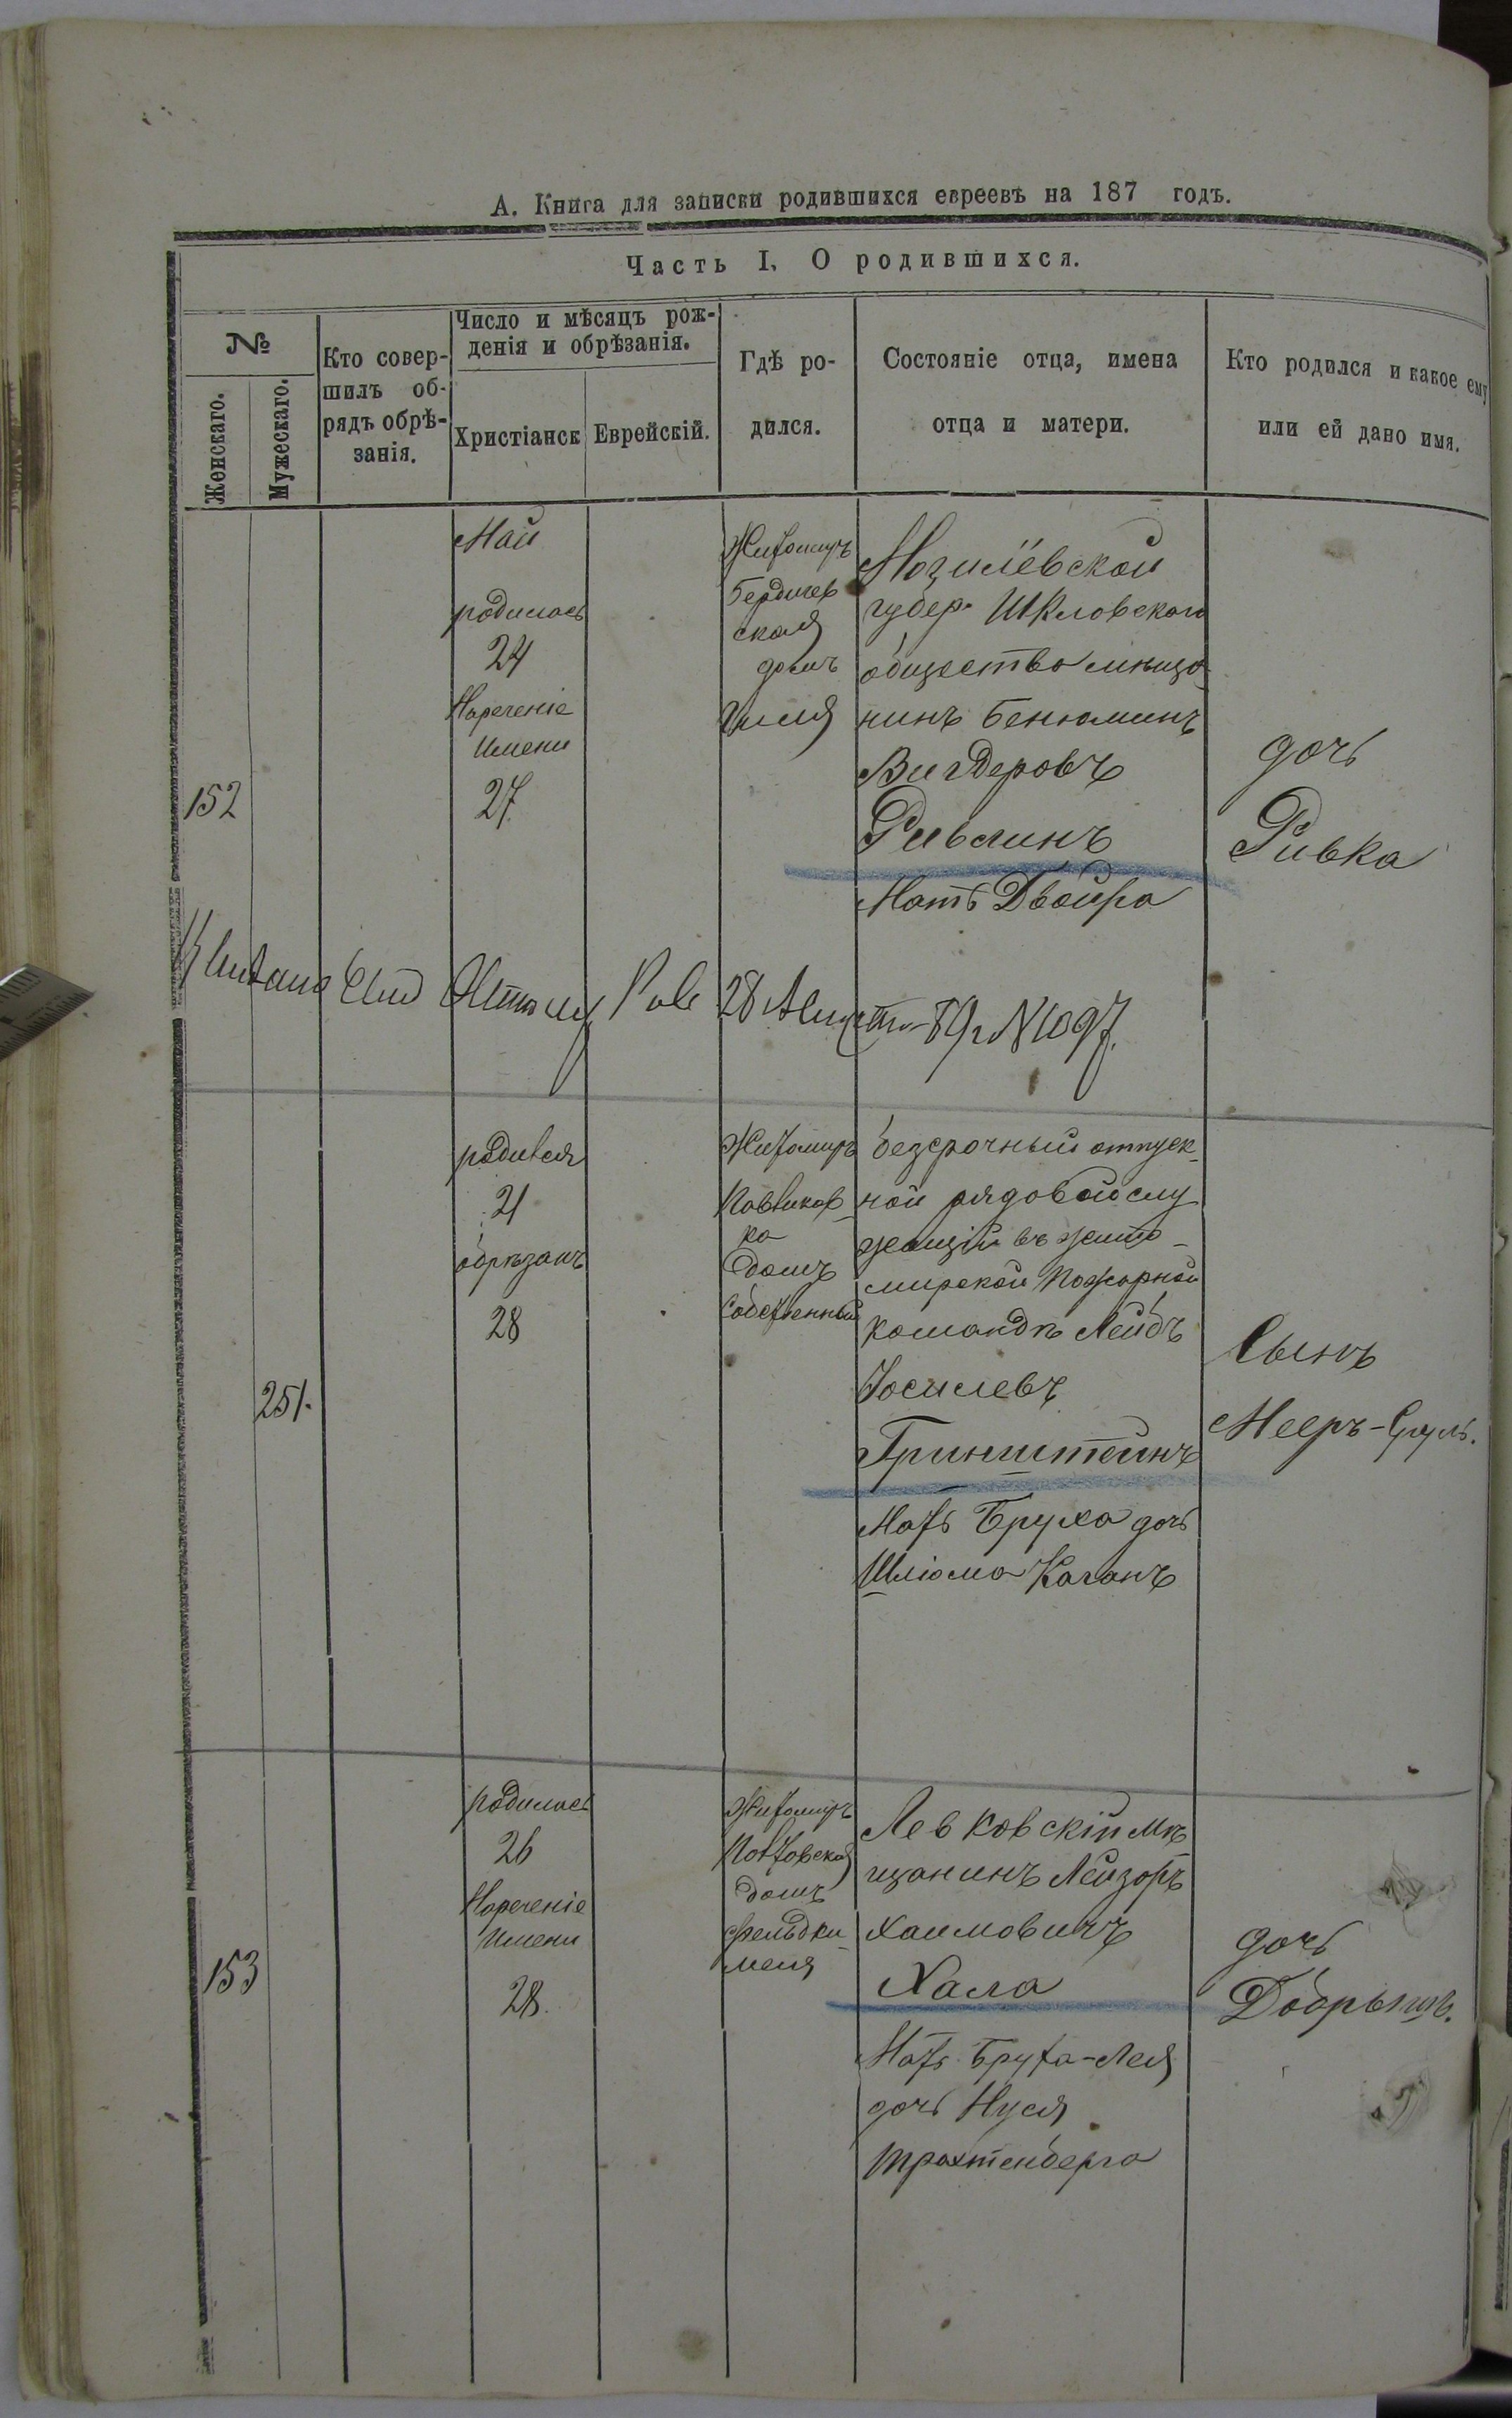 А. Книга для записки родившихся евреевъ на 187 годъ.
Часть I. О родившихся.
№
Женскаго.
Мужескаго.
Кто совер-
шилъ об-
рядъ обрѣ-
занія.
Число и мѣсяцъ рож-
денія и обрѣзанія.
Христіанск
Еврейскій.
Гдѣ ро-
дился.
Состояніе отца, имена
отца и матери.
Кто родился и какое ему
или ей дано имя.
152
Май
родилась
24
Нареченіе
Имени
27.
Житомиръ
Бердичев
ская
домъ
Могилёвской
губер. Шкловскаго
общества мѣща
нинъ Бенюминъ
Вигдеровъ
Ривлинъ
Мать Двойра
дочь
Ривка
28 89 г N 1097.
251.
родился
21
обрѣзанъ
28
Житомиръ
ка
домъ
Собственный
безсрочный отпуск-
ной рядовой слу
жащій въ жито-
мирской Пожарной
командѣ Лейбъ
Іосилевъ
Гринштейнъ
Мать Бруха дочь
Шлiома Каганъ
Сынъ
Мееръ-Сруль.
153
родилась
26
Нареченіе
Имени
28.
Житомиръ
домъ
Фельдки-
меня
Левковскій мѣ
щанинъ Лейзоръ
Хаимовичъ
Хала
Мать Бруха-Лея
дочь Нуся
Трахтенберга
дочь
Добрышъ.